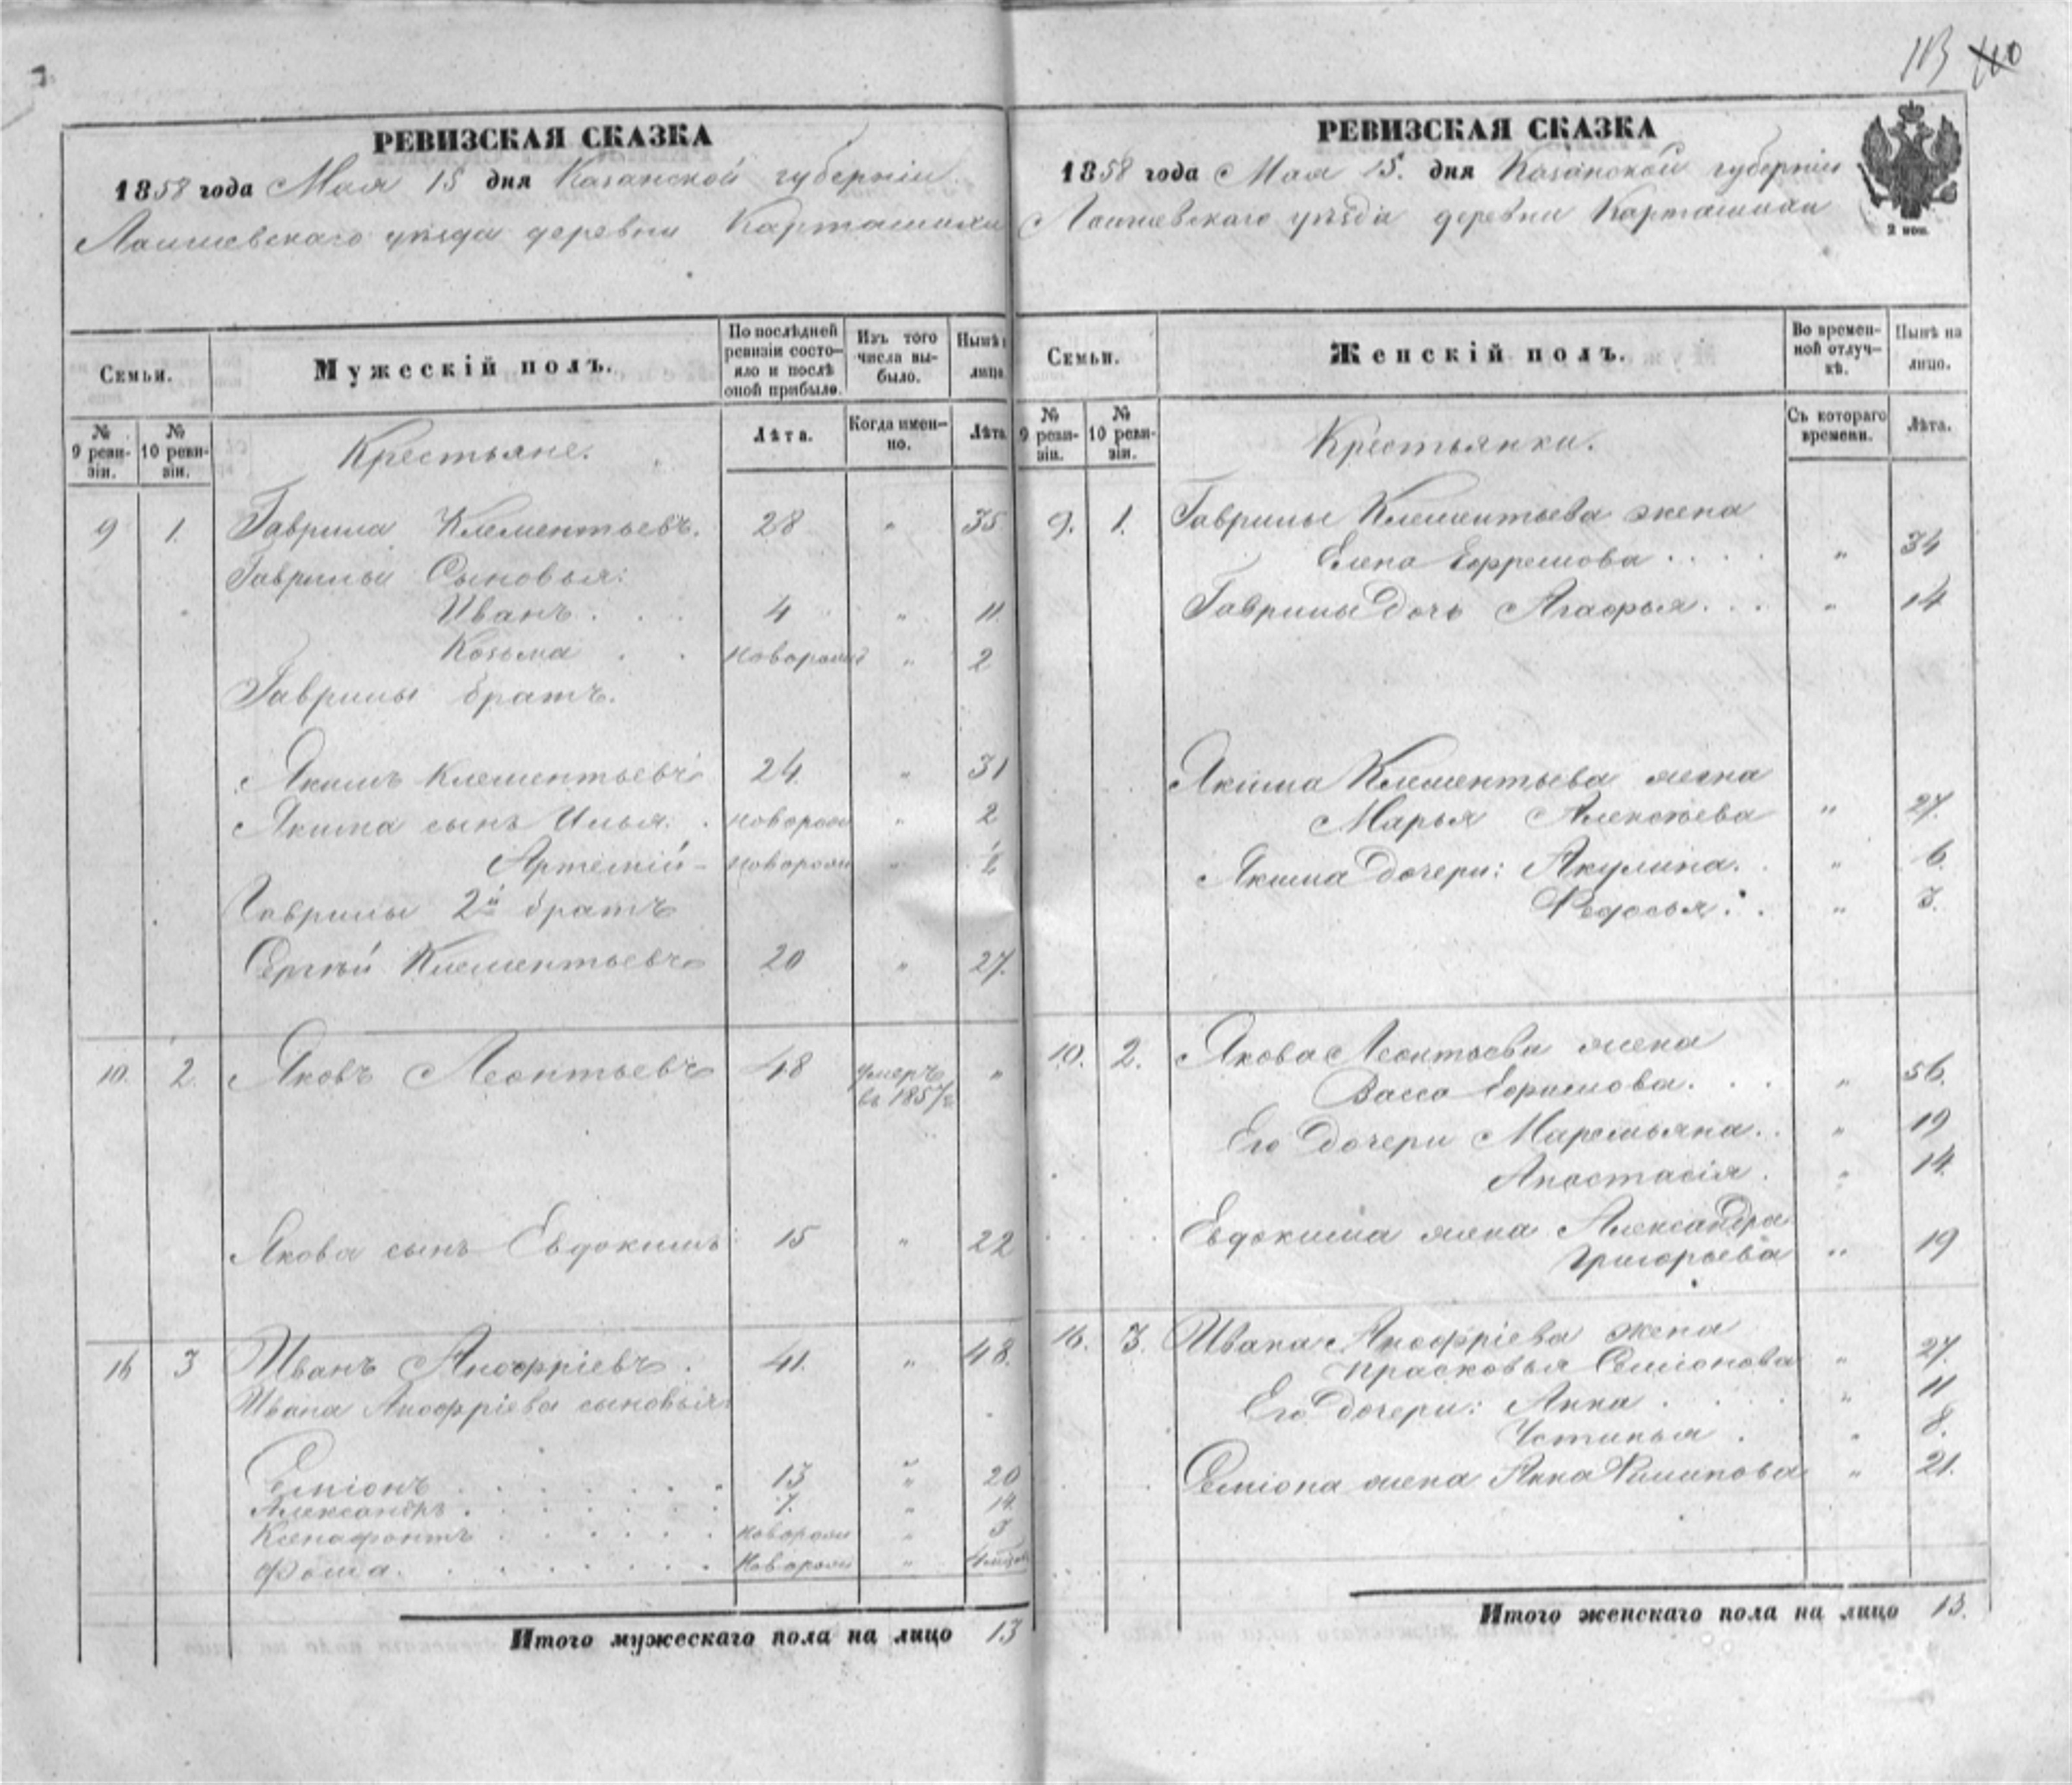 113 110
РЕВИЗСКАЯ СКАЗКА
1858 года Мая 15 дня Казанской губерніи
Лаишевскаго уѣзда деревни Карташихи
Семьи.
Мужескій полъ.
По послѣдней ревизіи состояло и послѣ оной прибыло.
Изъ того числа выбыло.
Нынѣ лицо
№ 9 ревизіи.
№ 10 ревизіи.
Крестьяне.
Лѣта.
Когда именно.
Лѣта
9 1. Гаврила Клементьевъ. 28 " 35
Гаврилы Сыновья:
Иванъ . . . 4 " 11.
Козьма . . новорожд " 2
Гаврилы братъ.
Якимъ Клементьевъ 24 " 31
Якима сынъ Илья. . новорож " 2
Артемій - новорож "
Гаврилы 2й братъ
Сергѣй Клементьевъ 20 " 27.
10. 2. Яковъ Леонтьевъ 48 умеръ въ 1857 г "
Якова сынъ Евдокимъ 15 " 22
16 3 Иванъ Анофріевъ . 41. " 48.
Ивана Анофріева сыновья:
Семіонъ . . . . . . . 13 " 20
Александръ . . . . . . . 7. " 14.
Ксенафонтъ . . . . . . новорож " 3
Фома. . . . . . . . Новорож "
Итого мужескаго пола на лицо 13
РЕВИЗСКАЯ СКАЗКА
1858 года Мая 15. дня Казанской губерніи
Лаишевскаго уѣзда деревни Карташихи
2 коп.
Семьи.
Женскій полъ.
Во временной отлучкѣ.
Нынѣ на лицо.
№ 9 ревизіи.
№ 10 ревизіи.
Крестьянки.
Съ котораго времени.
Лѣта.
9. 1. Гаврилы Клементьева жена
Елена Ефремова . . . . " 34
Гаврилы Дочь Агафья. . . " 14
Якима Клементьева жена
Марья Алексѣева " 27.
Якима дочери: Акулина. . " 6.
Федосья. . " 3.
10. 2. Якова Леонтьева жена
Васса Ефимова. . . " 56.
Его Дочери Маремьяна. . " 19
Анастасія . " 14.
Евдокима жена Александра
Григорьева " 19
16. 3. Ивана Анофріева жена
Прасковья Семіонова " 27.
Его дочери: Анна . . . . " 11
Устинья . " 8.
Семіона жена Анна Филипова " 21.
Итого женскаго пола на лицо 13.